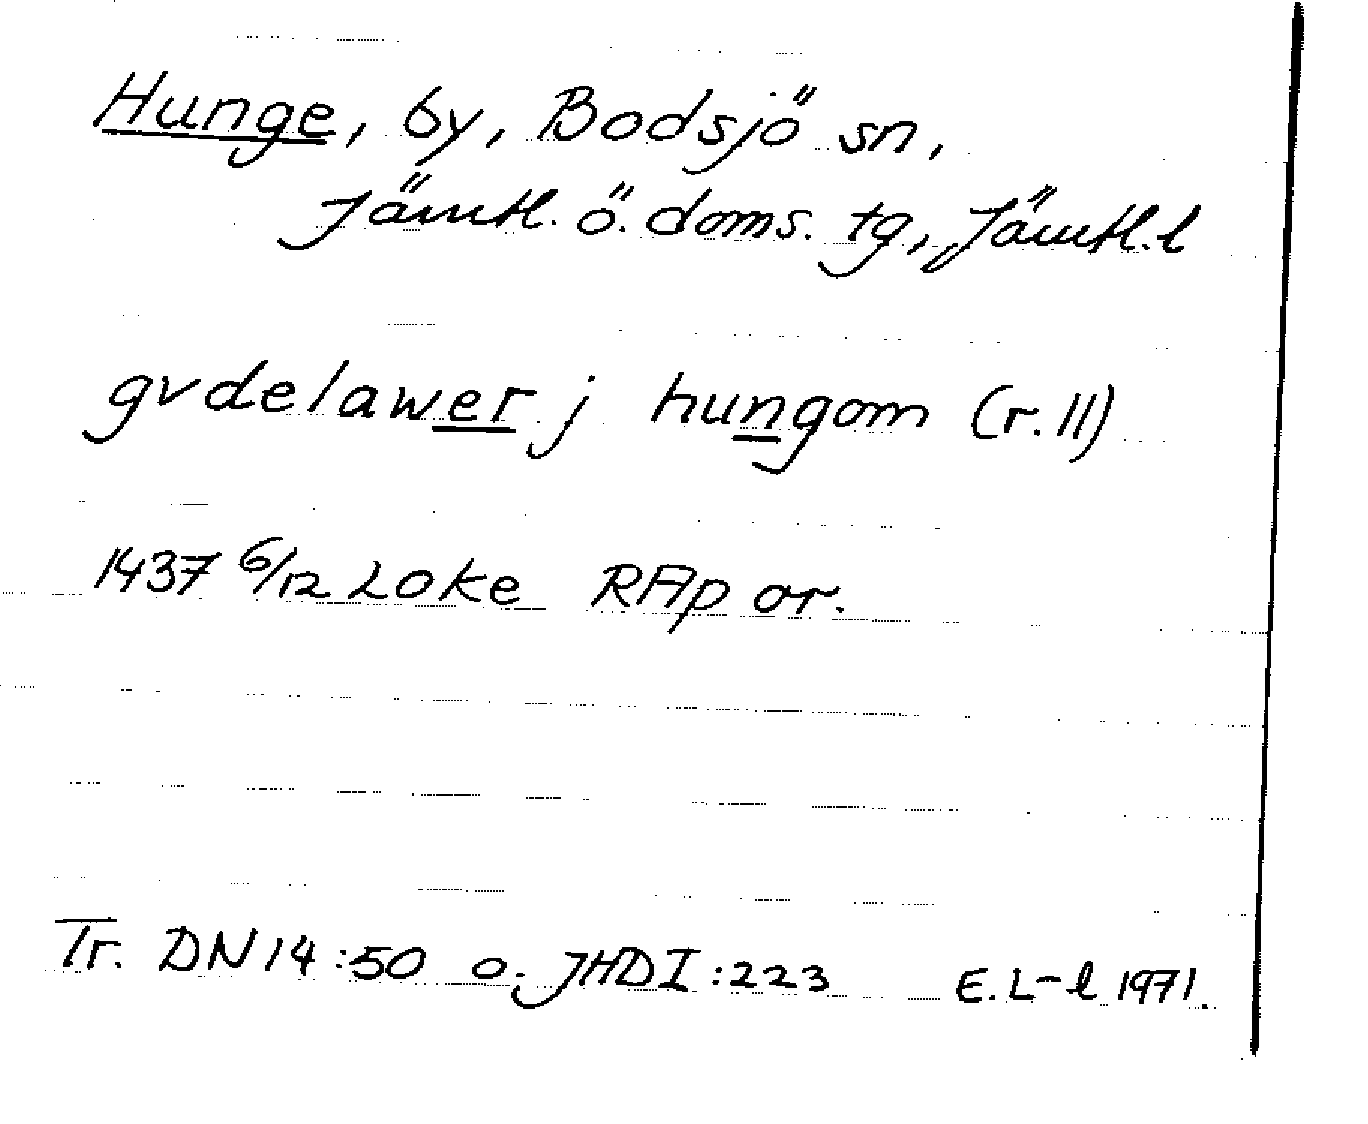 Hunge, by, Bodsjö sn,
Jämtl. ö. doms. tg, Jämtl. l
gvdelawer j hungom (r. 11)
1437 6/12 Loke RAp or.
Tr. DN 14:50 o. JHD I:223 E. L-l 1971.